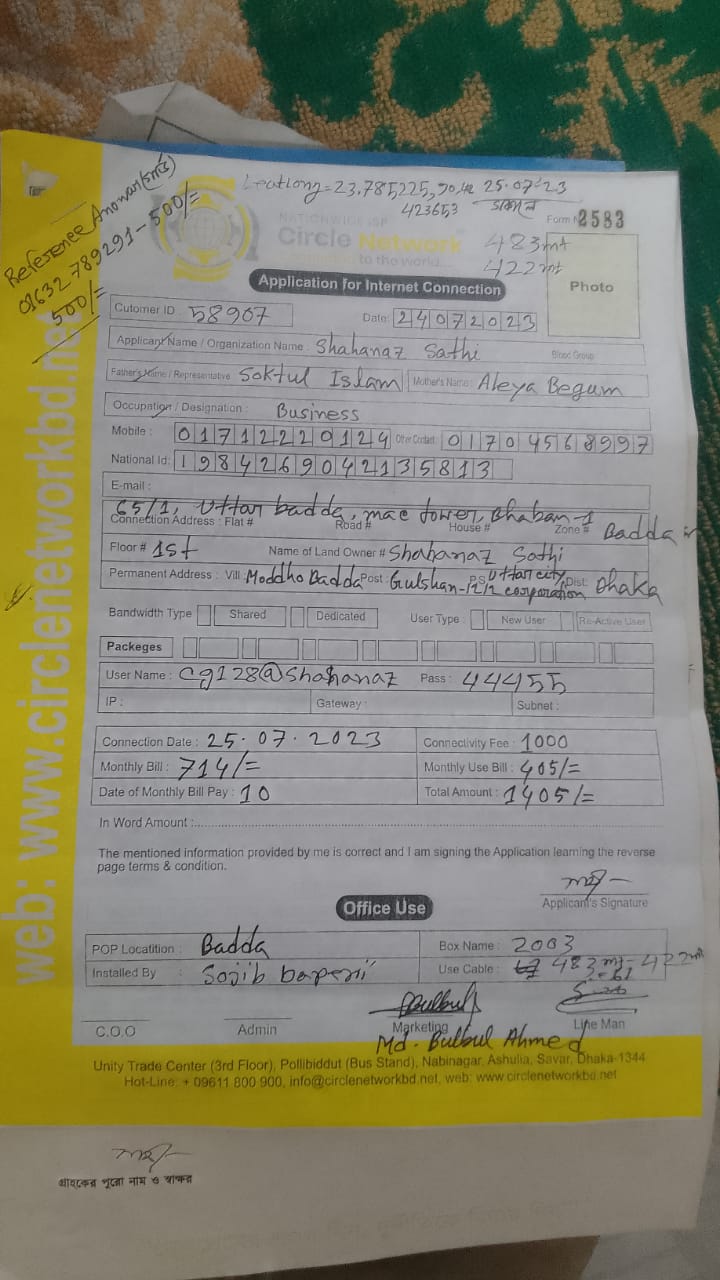 Reference Anowar
01632 789291-500/=
500/=
25.07.23
423653
NATIONWIDE ISP
Circle Network
to the world...
Form 2583
483mt
422mt
Photo
Application for Internet Connection
Cutomer ID 58907
Date: 24072023
Applicant Name / Organization Name : Shahanaz Sathi
Blood Group
Father's Name / Representative Soktul Islam Mother's Name : Aleya Begum
Occupation / Designation : Business
Mobile : 01712220124 Other Contact 01704568997
National Id: 19842690421358 13
E-mail :
65/1, Uttar badda, mae tower, Bhaban-1
Connection Address : Flat # Road # House # Zone # Badda
Floor # 1st Name of Land Owner # Shahanaz Sathi
Permanent Address : Vill: Moddho Badda Post: Gulshan-1212 P.S Uttar city corporation Dist: Dhaka
Bandwidth Type Shared Dedicated User Type : New User Re-Active User
Packeges
User Name : cg128@shahanaz Pass : 44455
IP : Gateway : Subnet :
Connection Date : 25.07.2023 Connectivity Fee : 1000
Monthly Bill : 714/= Monthly Use Bill : 405/=
Date of Monthly Bill Pay : 10 Total Amount : 1405/=
In Word Amount :
The mentioned information provided by me is correct and I am signing the Application learning the reverse
page terms & condition.
Applicant's Signature
Office Use
POP Locatition : Badda Box Name : 2003
Installed By : Sojib baperii Use Cable : 483mt-422mt
=61
Bulbul
C.O.O Admin Marketing Line Man
Md. Bulbul Ahmed
Unity Trade Center (3rd Floor), Pollibiddut (Bus Stand), Nabinagar, Ashulia, Savar, Dhaka-1344
Hot-Line: + 09611 800 900, info@circlenetworkbd.net, web: www.circlenetworkbd.net
web: www.circlenetworkbd.net
গ্রাহকের পুরো নাম ও স্বাক্ষর